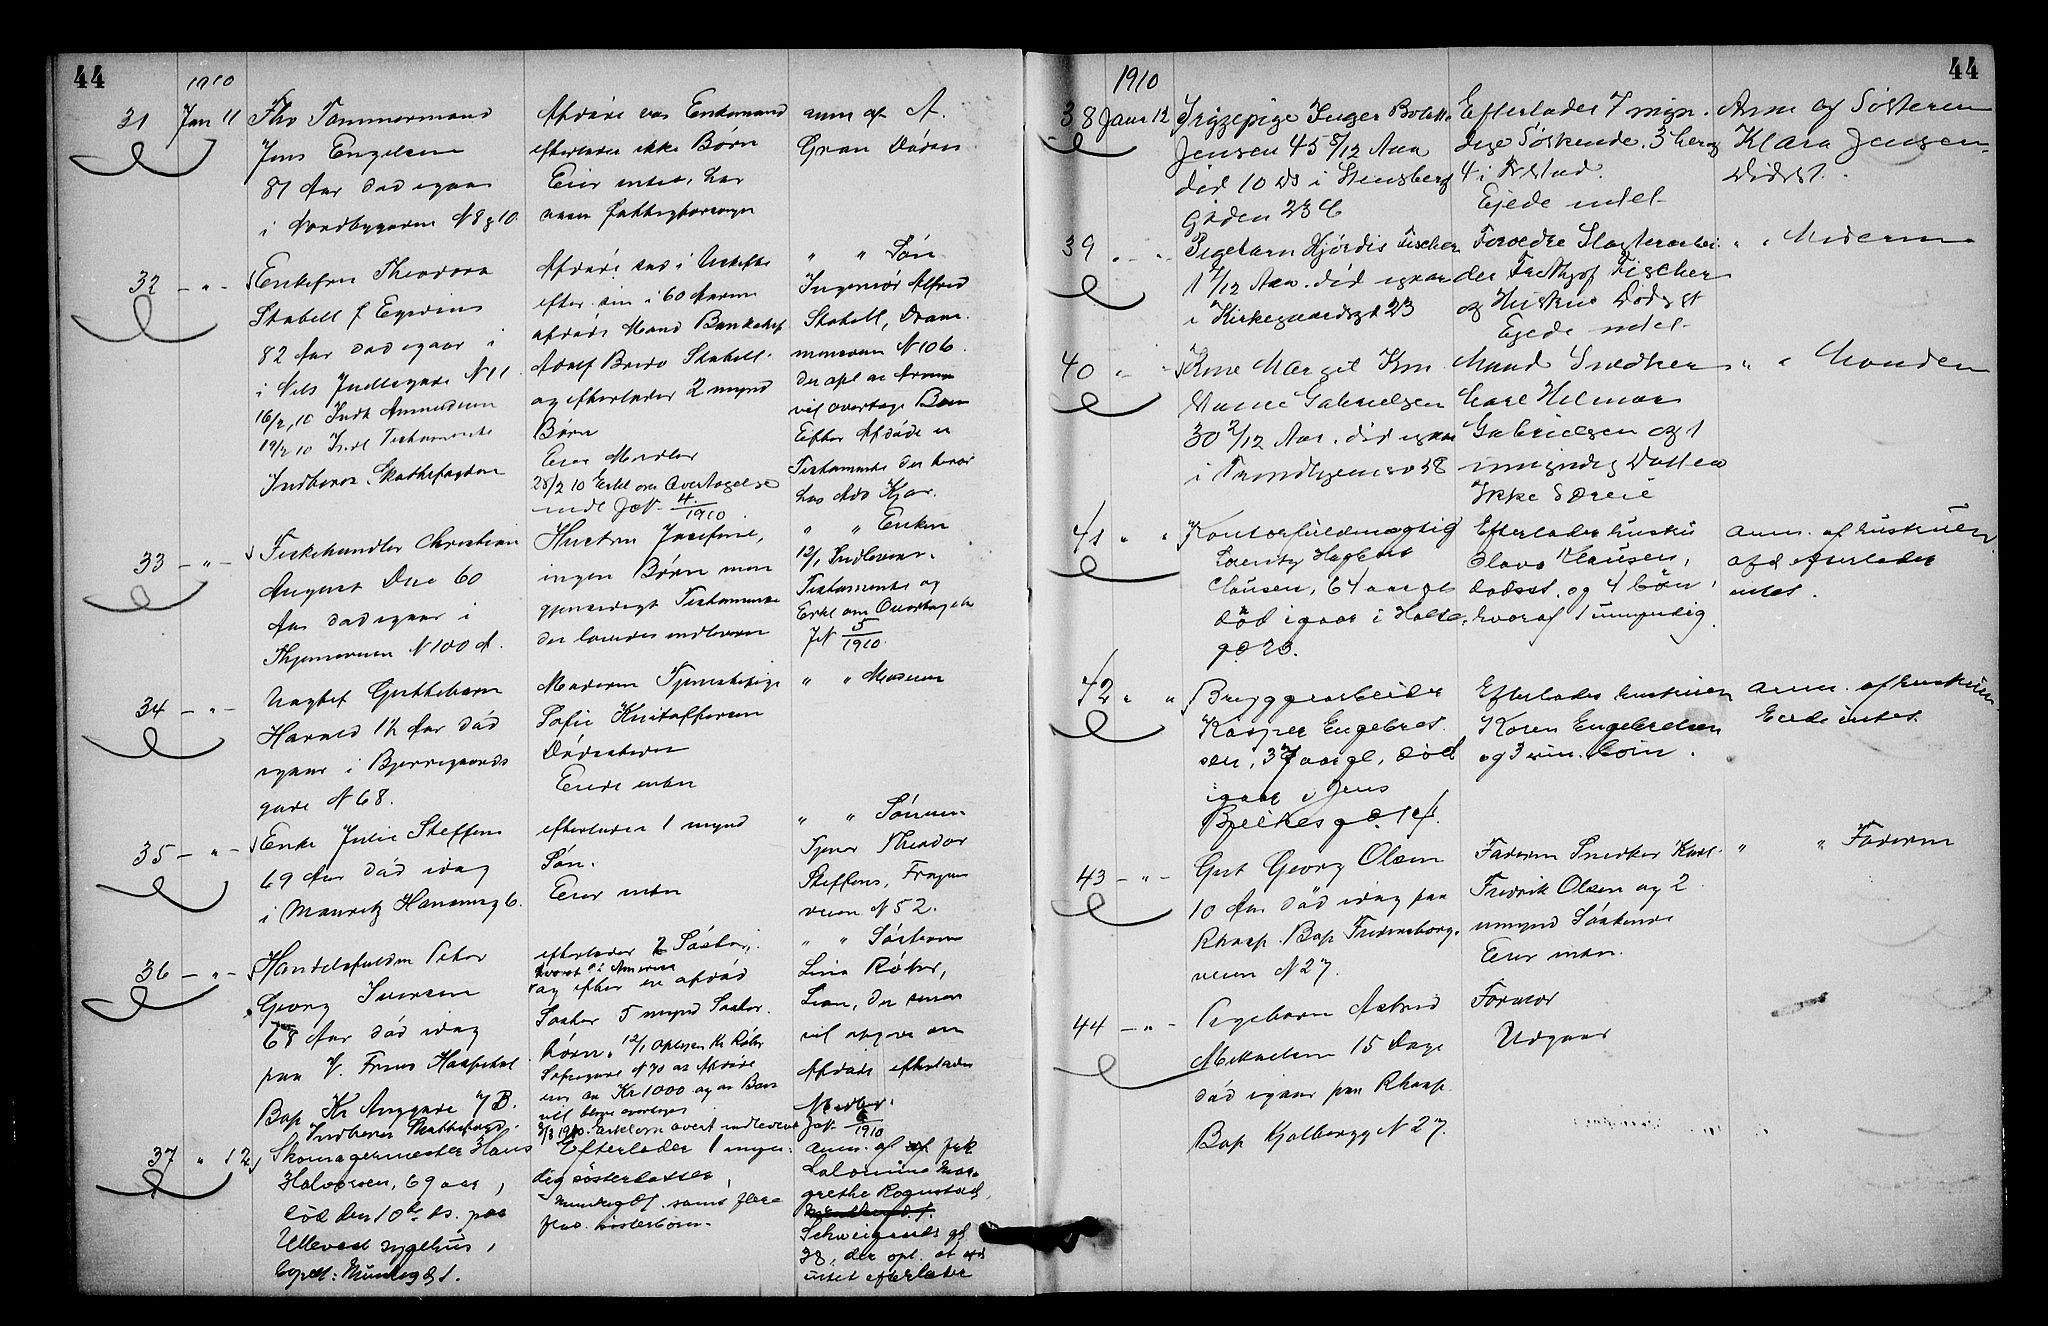 44
1910
31 Jan 11 Fhv Tømmermand
Jens Engelsen
81 Aar død igaar
i Nordbygaden N 8 g 10.
Afdøde var Enkemand
efterlader ikke Børn
Eier intet, har
Fattigforsorgen
anm af A.
Gran Døden
32 - " - Enkefru Theodora
Stabell f Egedius
82 Aar død igaar i
i Nils Juelsgade N 11
16/2, 10 Indk
19/2 10 Indl Testamente
Indberet Skattefogden
Afdøde sad i Uskifte
efter sin i 60 Aarene
afdøde Mand Bankchef
Adolf Bredo Stabell
og efterlader 2 mynd
Børn
Eier Midler
25/2 10 Erkl om Overtagelse
indl JN 4/1910
" " Søn
Ingeniør Alfred
Stabell, Dram
mensveien N 106.
der opl at Arven
vil overtage Boet
Efter Afdøde er
Testamente der beror
hos Adv Kjær.
33 - " - Fiskehandler Christian
August Due 60
Aar død igaar i
Thjemsveien N 100 A.
Hustru Josefine,
ingen Børn men
gjensidigt Testamente
der loves indleveret
" " Enken
12/1 Indleveret
Testamente og
Erkl om Overtagelse
JN 5/1910.
34 - " - Uægtef Guttebarn
Harald 1 1/2 Aar død
igaar i Bjerregaards
gade N 68.
Moderen Tjenestepige
Sofie Kristoffersen
Dødsstedet
Eiede intet
" " Moderen
35 - " - Enke Julie Steffens
69 Aar død idag
i Mauritz Hansensg 6.
efterlader 1 mynd
Søn.
Eier intet
" " Sønnen
Theodor
Steffens, Frogner
veien N 52.
36 - " - Handelsfuldm Peter
Georg Iversen
68 Aar død idag
paa V. Frues Hospital
Bop Kr Auggade 7 B.
Indberet Skattefogd.
efterlader 2 Søskn.
hvoraf 1 i Amerika
og efter en afdød
Søster 5 mynd Søster
børn. 12/1 oplyser Kr Røhr
Sofiesgade N 70 at Afdøde
eier ca Kr 1000 og at Boet
vil bliver overtaget
3/3 1910. Erkl om overt indleveret
" " Søsteren
Lina Røhr,
Lian, der senere
vil opgive om
Afdøde efterlader
Midler.
JN 6/1910
37 " 12 Skomagermester Hans
Halvorsen, 69 aar,
død den 10de ds. paa
Ullevaal sygehus,
bopæl: Munkegd 1.
Efterlader 1 myn-
dig søsterdatter,
Munkegd 1. samt flere
flere søsterbørn.
anm. af frk
Salomine Mar
grethe Rognstad,
Schweigaards gd
38, der opl. at afd
intet efterlader

44
1910
38 Janr 12 Sypige Inger Bolette
Jensen 45 8/12 Aar
død 10 ds i Stensberg
gaden 23 C
Efterlader 7 myn
dige Søskende. 3 her og
4 i Frstad.
Ejede intet
Anm af Søsteren
Klara Jensen
Dødsst.
39 " - " Pigebarn Hjørdis Fischer
1 7/12 Aar. død igaar
i Kirkegaardsgt 23
Forældre Slagterarbei
der Fridthjof Fischer
og Hustru Dødsst
Ejede intet
" " Moderen
40 " - " Kone Margit Kri
stiane Gabrielsen
30 2/12 Aar. død igaar
i Trondhjemsv 58
Mand Snedker
Carl Hilmar
Gabrielsen og 1
umyndig Datter
Ikke Særeie
" " Manden
41 " " Kontorfuldmægtig
Lorentz Hagbart
Clausen, 64 aar gl
død igaar i Holte.
gd 23.
Efterlader hustru
Olava Klausen,
dødsst. og 4 børn,
hvoraf 1 umyndig.
anm. af hustruen.
afd. efterlader
intet.
42 " " Bryggearbeider
Kasper Engebret
sen, 37 aar gl, død
igaar i Jens
Bjelkes gd. 14.
Efterlader hustruen
Karen Engebretsen
og 3 um. børn.
anm. af hustruen.
Eiede intet.
43 - " - Gut Georg Olsen
10 Aar død idag paa
Rhosp. Bop Fredensborg.
veien N 27.
Faderen Snedker Karl
Fredrik Olsen og 2
umynd Søskende
Eier intet.
" " Faderen
44 - " - Pigebarn Astrid
Mikkelsen 15 Dage
død igaar paa Rhosp.
Bop Kjølberggt N 27.
Formor
Udgaar